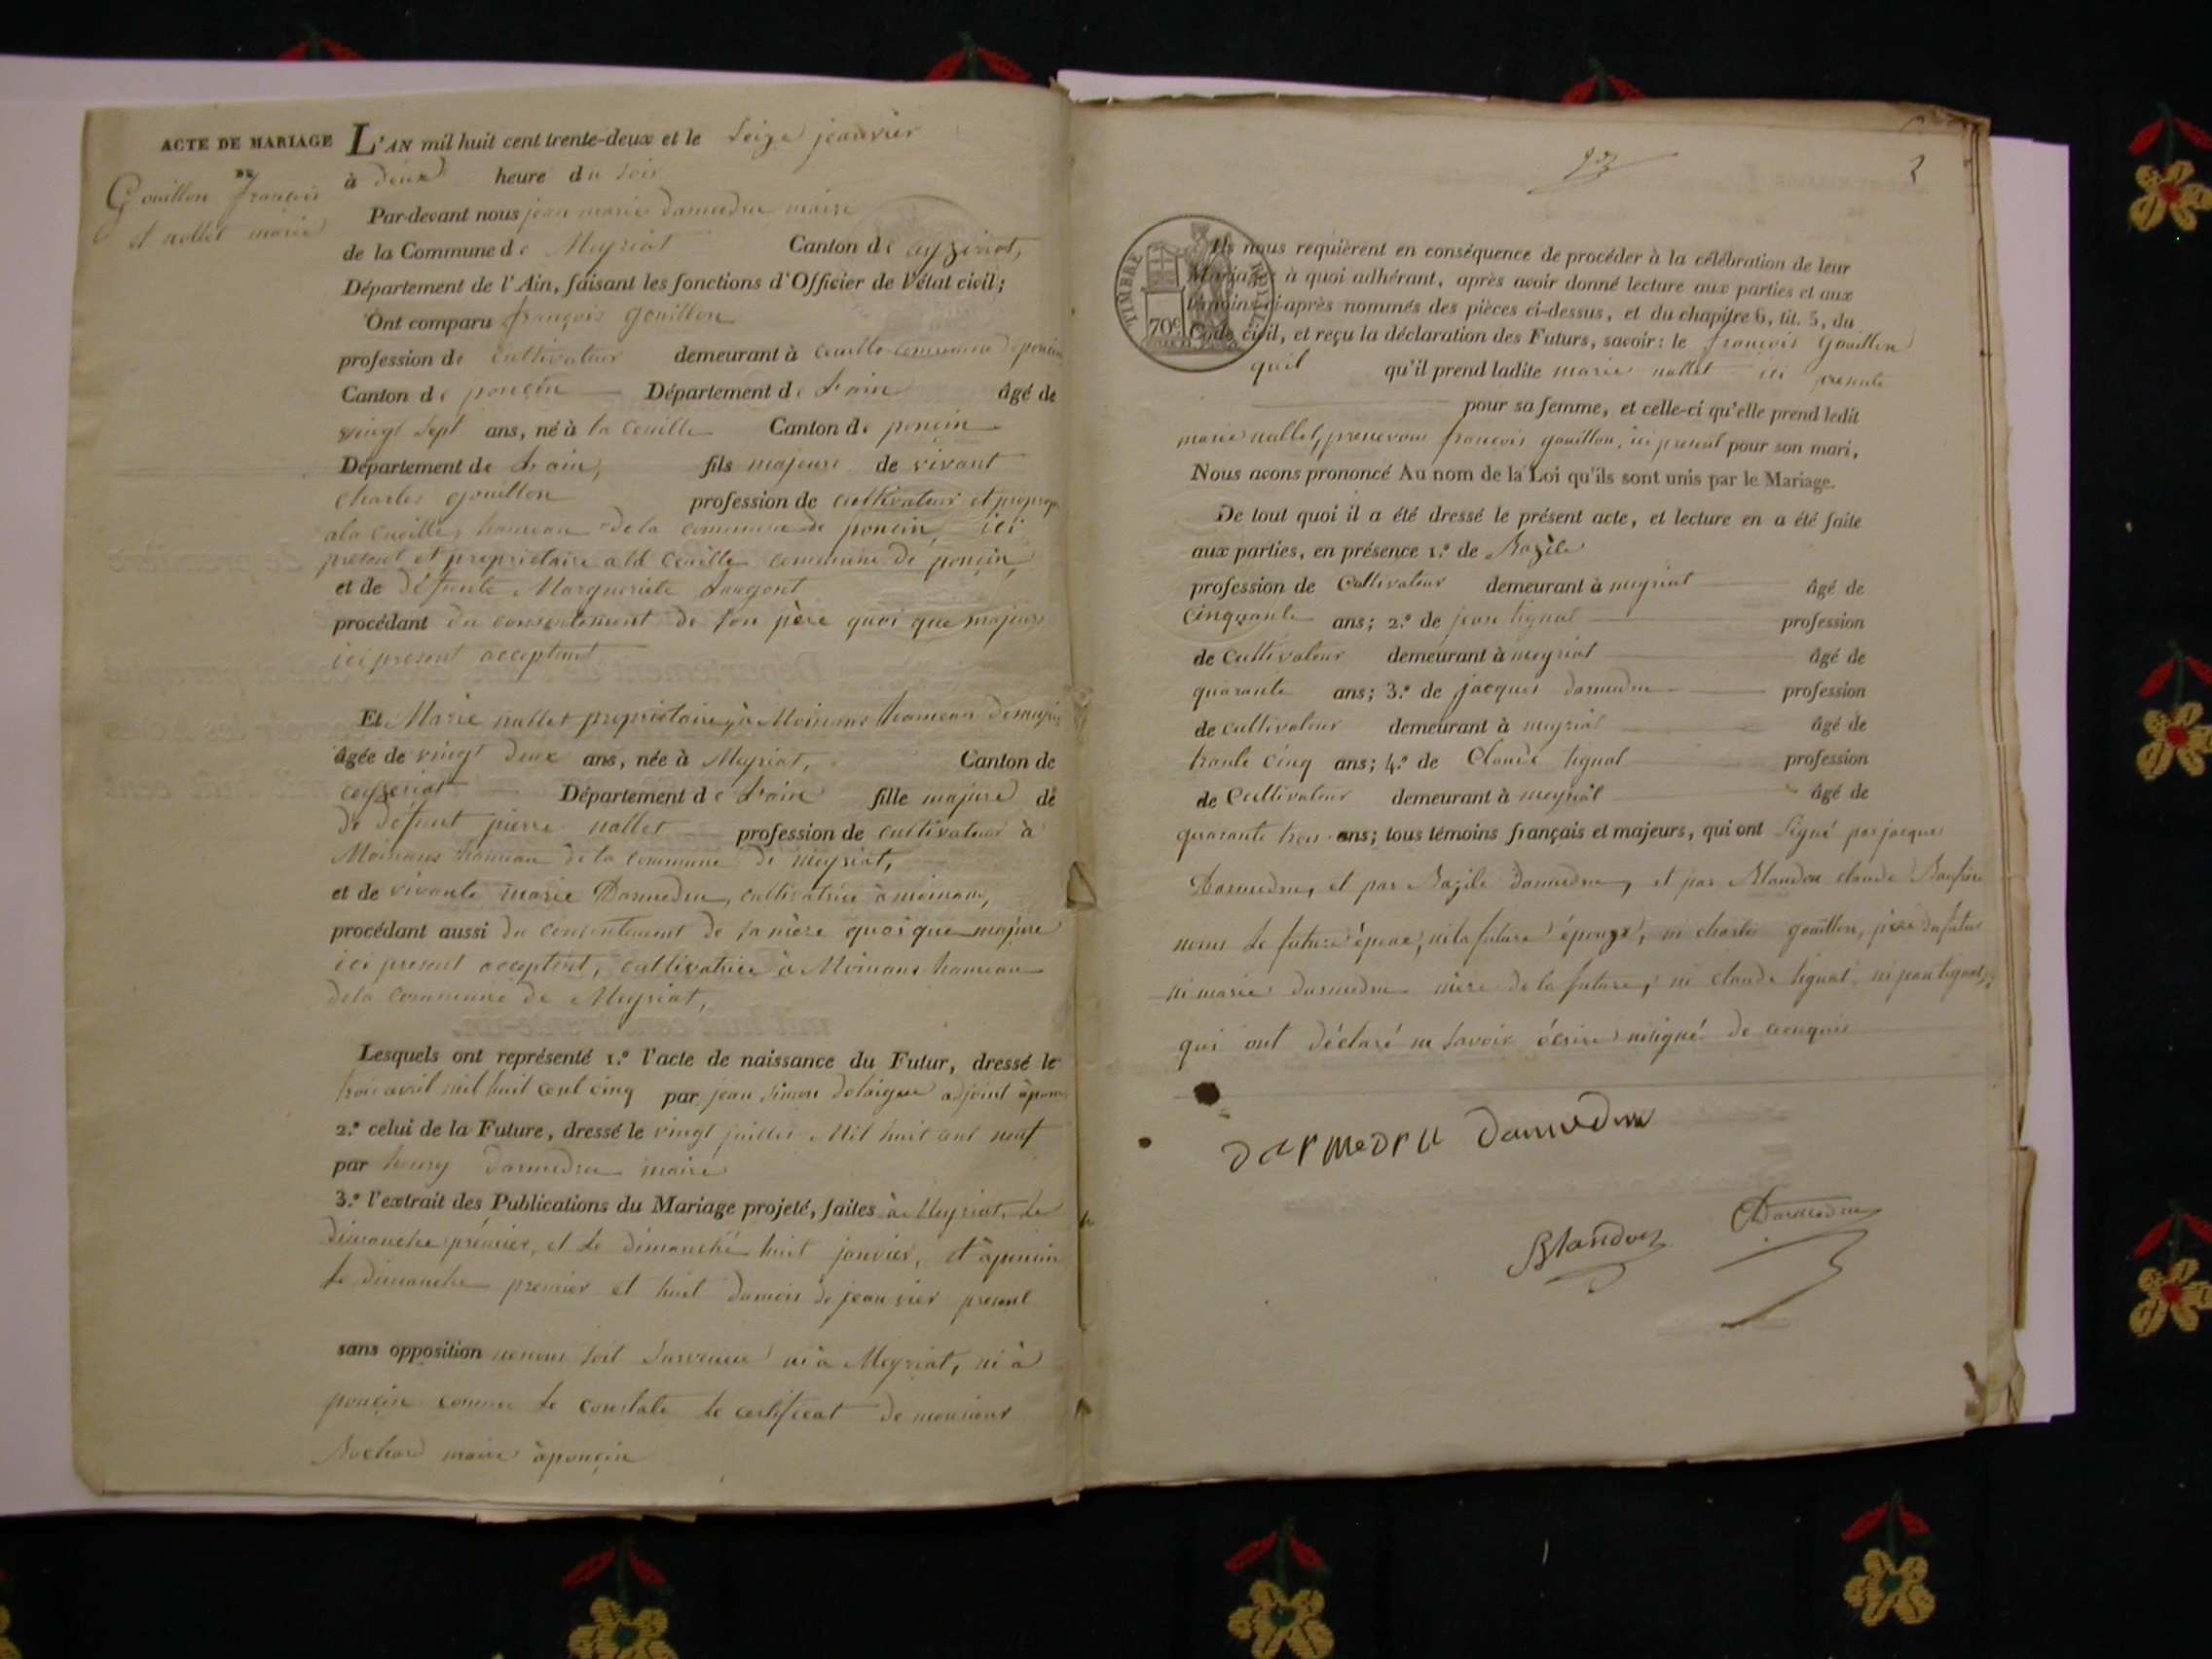 ACTE DE MARIAGE
DE
Gouillon François
et nallet marie
L'AN mil huit cent trente-deux et le Seize jeanvier
à deux heure du soir
Par-devant nous jean marie darmedru maire
de la Commune de Meyriat Canton de ceyzeriat,
Département de l'Ain, faisant les fonctions d'Officier de l'état civil;
Ont comparu françois gouillon
profession de cultivateur demeurant à commune de poncin
Canton de poncin Département de l'ain âgé de
vingt sept ans, né à la Canton de poncin
Département de l'ain, fils majeure de vivant
Charles gouillon profession de cultivateur et
a la hameau de la commune de poncin, ici
present et proprietaire a la commune de poncin,
et de défunte Marguerite
procédant du consentement de son père quoi que majeur
ici present acceptant
Et Marie nallet proprietaire, à Moinans hameau de
âgée de vingt deux ans, née à Meyriat, Canton de
ceyzeriat Département de l'ain fille majure de
de défunt pierre nallet profession de cultivateur à
Moinans hameau de la commune de meyriat,
et de vivante marie Darmedru, cultivatrice à moinans,
procédant aussi du consentement de sa mère quoique majure
ici present acceptent, cultivatrice à Moinans hameau
de la commune de Meyriat,
Lesquels ont représenté 1.º l'acte de naissance du Futur, dressé le
trois avril mil huit cent cinq par jean simon delaigue adjoint à
2.º celui de la Future, dressé le vingt juillet Mil huit cent neuf
par darmedru maire
3.º l'extrait des Publications du Mariage projeté, faites à Meyriat, le
dimanche prémier, et le dimanche huit janvier, et à poncin
le dimanche premier et huit du mois de jeanvier present
sans opposition soit survenue ni à Meyriat, ni à
poncin comme le constate le certificat de monsieur
maire à poncin
2
TIMBRE ROYAL
70c
Ils nous requièrent en conséquence de procéder à la célébration de leur
Mariage à quoi adhérant, après avoir donné lecture aux parties et aux
témoins ci-après nommés des pièces ci-dessus, et du chapitre 6, tit. 5, du
Code civil, et reçu la déclaration des Futurs, savoir: le françois gouillon
quil qu'il prend ladite marie nallet ici presente
pour sa femme, et celle-ci qu'elle prend ledit
marie nallet, françois gouillon, ici present pour son mari,
Nous avons prononcé Au nom de la Loi qu'ils sont unis par le Mariage.
De tout quoi il a été dressé le présent acte, et lecture en a été faite
aux parties, en présence 1.º de Bazile
profession de Cultivateur demeurant à meyriat âgé de
cinquante ans; 2.º de jean tignat profession
de cultivateur demeurant à meyriat âgé de
quarante ans; 3.º de jacques darmedru profession
de cultivateur demeurant à meyriat âgé de
trante cinq ans; 4.º de Claude tignat profession
de Cultivateur demeurant à meyriat âgé de
quarante trois ans; tous témoins français et majeurs, qui ont signé par jacques
Darmedru, et par Bazile darmedru, et par Blandon claude
le future époux, ni la future épouze, ni charles gouillon, père du futur
ni marie darmedru mère de la future, ni claude tignat ni jean tignat
qui ont déclaré ne savoir écrire ni signé de
darmedru Darmedru
Blandon Darmedru